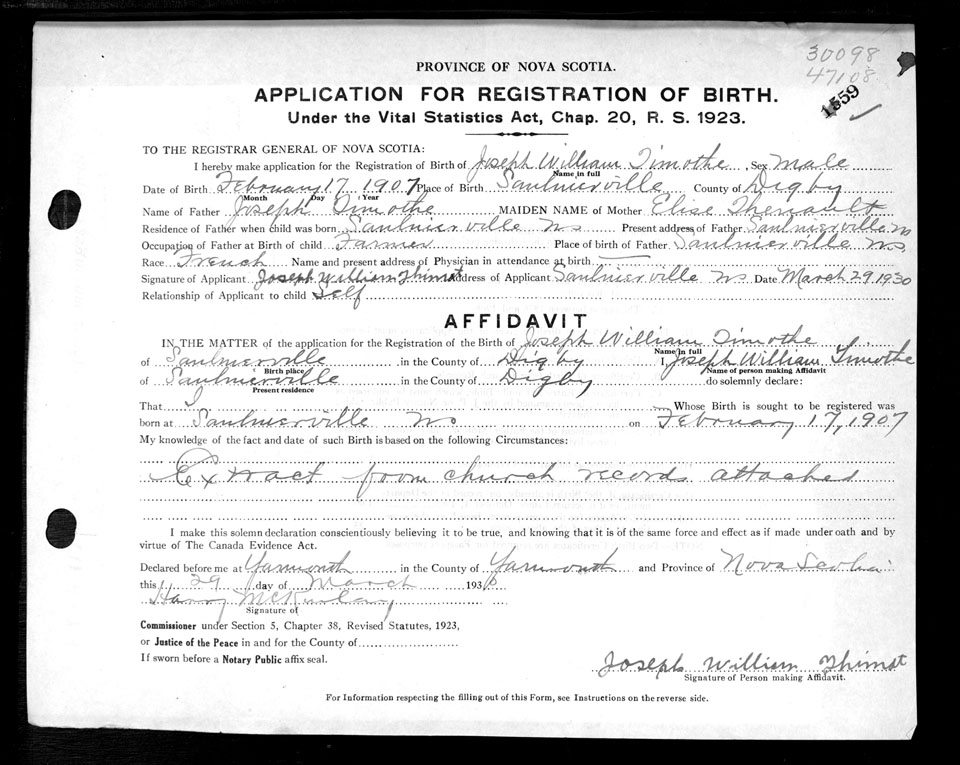 30098
47108
1559
PROVINCE OF NOVA SCOTIA.
APPLICATION FOR REGISTRATION OF BIRTH.
Under the Vital Statistics Act, Chap. 20, R. S. 1923.
TO THE REGISTRAR GENERAL OF NOVA SCOTIA:
I hereby make application for the Registration of Birth of Joseph William Timothe Sex Male
Name in full
Date of Birth February 17 1907 Place of Birth Saulnierville County of Digby
Month Day Year
Name of Father Joseph Timothe MAIDEN NAME of Mother Elise Theriault
Residence of Father when child was born Saulnierville NS Present address of Father Saulnierville NS
Occupation of Father at Birth of child Farmer Place of birth of Father Saulnierville NS
Race French Name and present address of Physician in attendance at birth
Signature of Applicant Joseph William Thimot address of Applicant Saulnierville NS Date March 29 1930
Relationship of Applicant to child Self
AFFIDAVIT
IN THE MATTER of the application for the Registration of the Birth of Joseph William Timothe
Name in full
of Saulnierville in the County of Digby I, Joseph William Timothe
Birth place Name of person making Affidavit
of Saulnierville in the County of Digby do solemnly declare:
Present residence
That I Whose Birth is sought to be registered was
born at Saulnierville NS on February 17, 1907
My knowledge of the fact and date of such Birth is based on the following Circumstances:
Extract from church records attached
I make this solemn declaration conscientiously believing it to be true, and knowing that it is of the same force and effect as if made under oath and by
virtue of The Canada Evidence Act.
Declared before me at Yarmouth in the County of Yarmouth and Province of Nova Scotia
this 29 day of March 1930
Harry
Signature of
Commissioner under Section 5, Chapter 38, Revised Statutes, 1923,
or Justice of the Peace in and for the County of
If sworn before a Notary Public affix seal.
Joseph William Thimot
Signature of Person making Affidavit.
For Information respecting the filling out of this Form, see Instructions on the reverse side.